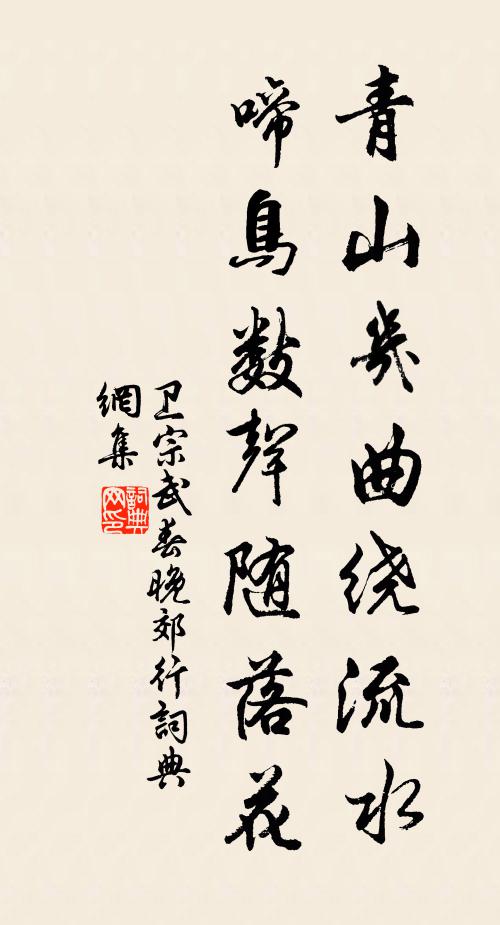 青山幾曲绕流水
啼鳥数聲随落花
卫宗武春晚郊行詞典
網集
詞典
网印